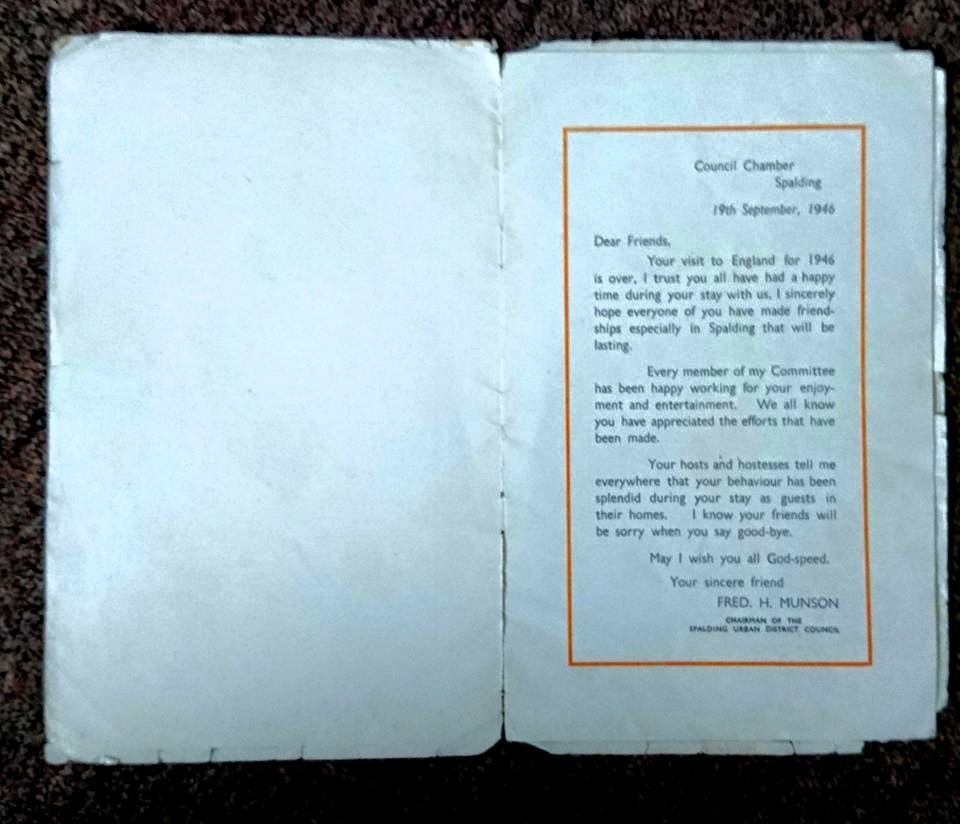 Council Chamber
Spalding
19th September, 1946
Dear Friends,
Your visit to England for 1946
is over, I trust you all have had a happy
time during your stay with us, I sincerely
hope everyone of you have made friend-
ships especially in Spalding that will be
lasting.
Every member of my Committee
has been happy working for your enjoy-
ment and entertainment. We all know
you have appreciated the efforts that have
been made.
Your hosts and hostesses tell me
everywhere that your behaviour has been
splendid during your stay as guests in
their homes. I know your friends will
be sorry when you say good-bye.
May I wish you all God-speed.
Your sincere friend
FRED. H. MUNSON
CHAIRMAN OF THE
SPALDING URBAN DISTRICT COUNCIL